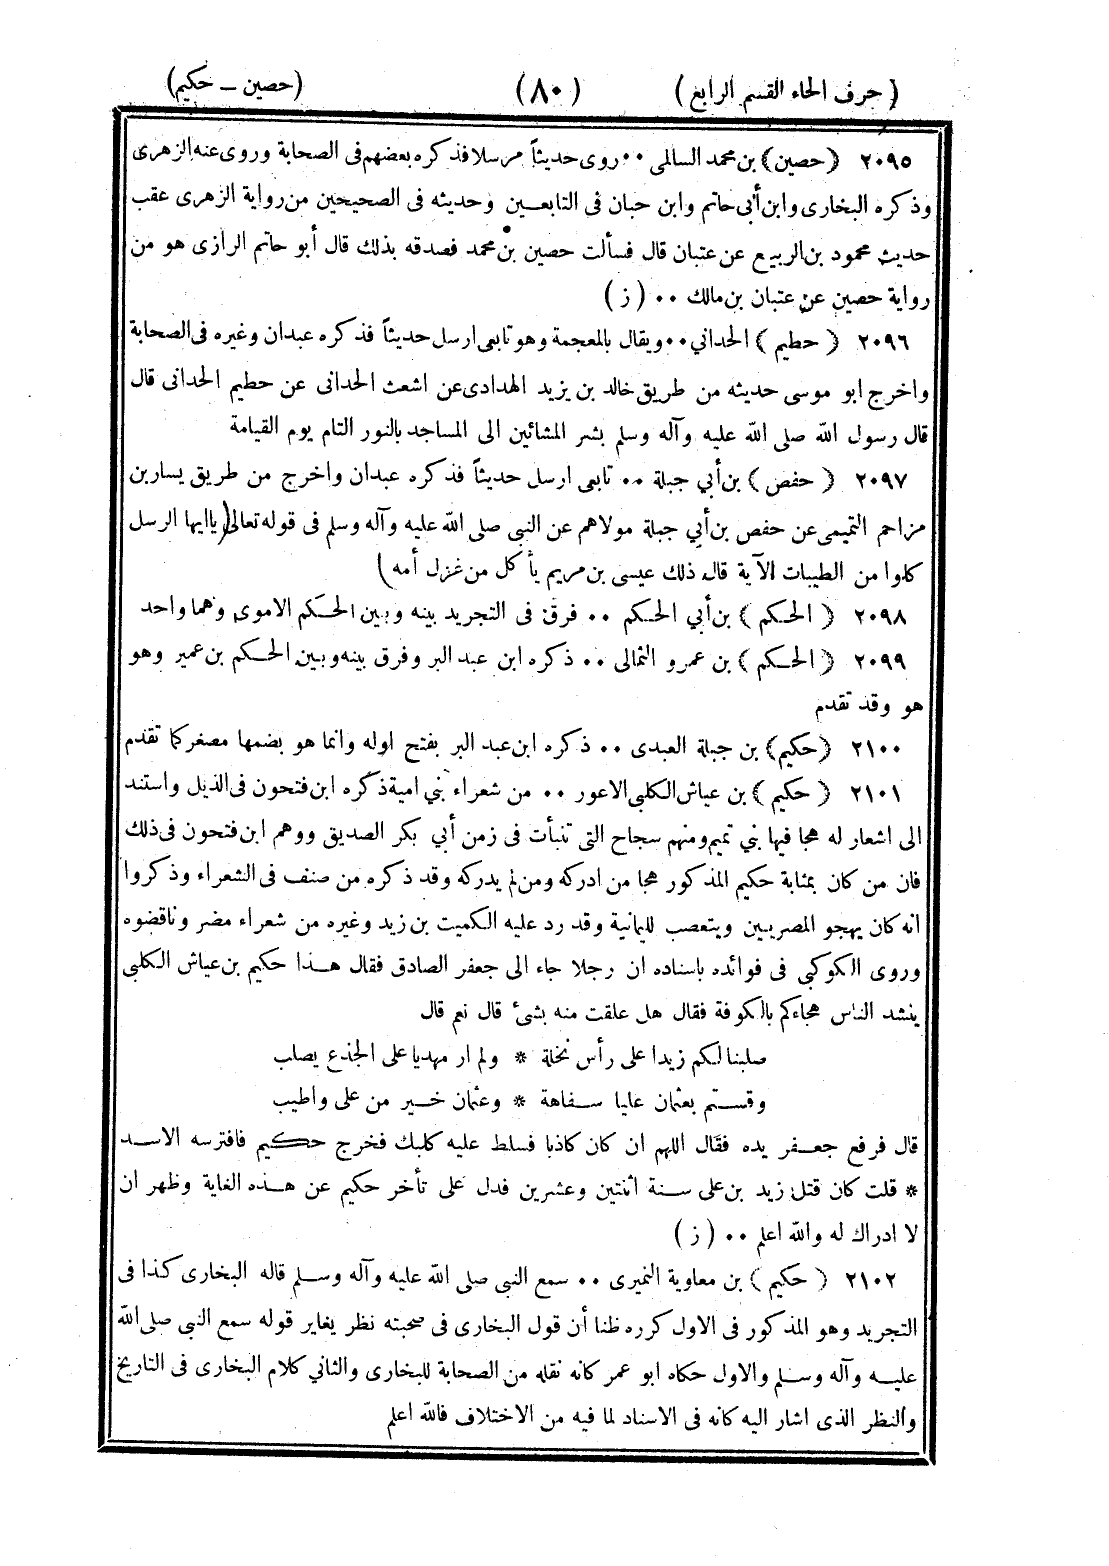 ( حرف الحاء القسم الرابع ) (٨٠) (حصين – حكيم)
٢٠٩٥ (حصين) بن محمد السالمى ٠٠ روى حديثاً مرسلا فذكره بعضهم فى الصحابة وروى عنه الزهرى
وذكره البخارى وابن أبى حاتم وابن حبان فى التابعـــين وحديثه فى الصحيحين من رواية الزهرى عقب
حديث محمود بن الربيع عن عتبان قال فسألت حصين بن محمد فصدقه بذلك قال أبو حاتم الرازى هو من
رواية حصين عن عتبان بن مالك ٠٠ ( ز )
٢٠٩٦ ( حطيم ) الحداني ٠٠ ويقال بالمعجمة وهو تابعى ارسل حديثاً فذكره عبدان وغيره فى الصحابة
واخرج ابو موسى حديثه من طريق خالد بن يزيد الهدادى عن اشعث الحدانى عن حطيم الحدانى قال
قال رسول الله صلى الله عليه وآله وسلم بشر المشائين الى المساجد بالنور التام يوم القيامة
٢٠٩٧ ( حفص ) بن أبي جبلة ٠٠ تابعى ارسل حديثاً فذكره عبدان واخرج من طريق يسار بن
مزاحم التميمى عن حفص بن أبي جبلة مولاهم عن النبى صلى الله عليه وآله وسلم فى قوله تعالى (ياايها الرسل
كلوا من الطيبات الآية قال ذلك عيسى بن مريم يأكل من غزل أمه )
٢٠٩٨ ( الحـكم ) بن أبي الحـكم ٠٠ فرق فى التجريد بينه وبين الحـكم الاموى وهما واحد
٢٠٩٩ ( الحـكم ) بن عمرو الثمالى ٠٠ ذكره ابن عبد البر وفرق بينه وبين الحـكم بن عمير وهو
هو وقد تقدم
٢١٠٠ (حكيم) بن جبلة العبدى ٠٠ ذكره ابن عبد البر بفتح اوله وانما هو بضمها مصغر كما تقدم
٢١٠١ ( حكيم ) بن عياش الكلبى الاعور ٠٠ من شعراء بني امية ذكره ابن فتحون فى الذيل واستند
الى اشعار له هجا فيها بني تميم ومنهم سجاح التى تنبأت فى زمن أبي بكر الصديق ووهم ابن فتحون فى ذلك
فان من كان بمثابة حكيم المذكور هجا من ادركه ومن لم يدركه وقد ذكره من صنف فى الشعراء وذكروا
انه كان يهجو المصريين ويتعصب لليمانية وقد رد عليه الكميت بن زيد وغيره من شعراء مضر وناقضوه
وروى الكوكبى فى فوائده باسناده ان رجلا جاء الى جعفر الصادق فقال هـــذا حكيم بن عياش الكلبى
ينشد الناس هجاءكم بالكوفة فقال هل علقت منه بشئ قال نعم قال
صلبنا لكم زيدا على رأس نخلة * ولم ار مهديا على الجذع يصلب
وقســتم بعثمان عليا ســفاهة * وعثمان خـــير من على واطيب
قال فرفع جعـــفر يده فقال اللهم ان كان كاذبا فسلط عليه كلبك فخرج حكيم فافترسه الاســد
* قلت كان قتل زيد بن على ســنة اثنتين وعشرين فدل على تأخر حكيم عن هـــذه الغاية وظهر ان
لا ادراك له والله اعلم ٠٠ ( ز )
٢١٠٢ ( حكيم ) بن معاوية النميرى ٠٠ سمع النبى صلى الله عليه وآله وســلم قاله البخارى كذا فى
التجريد وهو المذكور فى الاول كرره ظنا أن قول البخارى فى صحبته نظر يغاير قوله سمع النبى صلى الله
عليــه وآله وســلم والاول حكاه ابو عمر كانه نقله من الصحابة للبخارى والثاني كلام البخارى فى التاريخ
والنظر الذى اشار اليه كانه فى الاسناد لما فيه من الاختلاف فالله اعلم